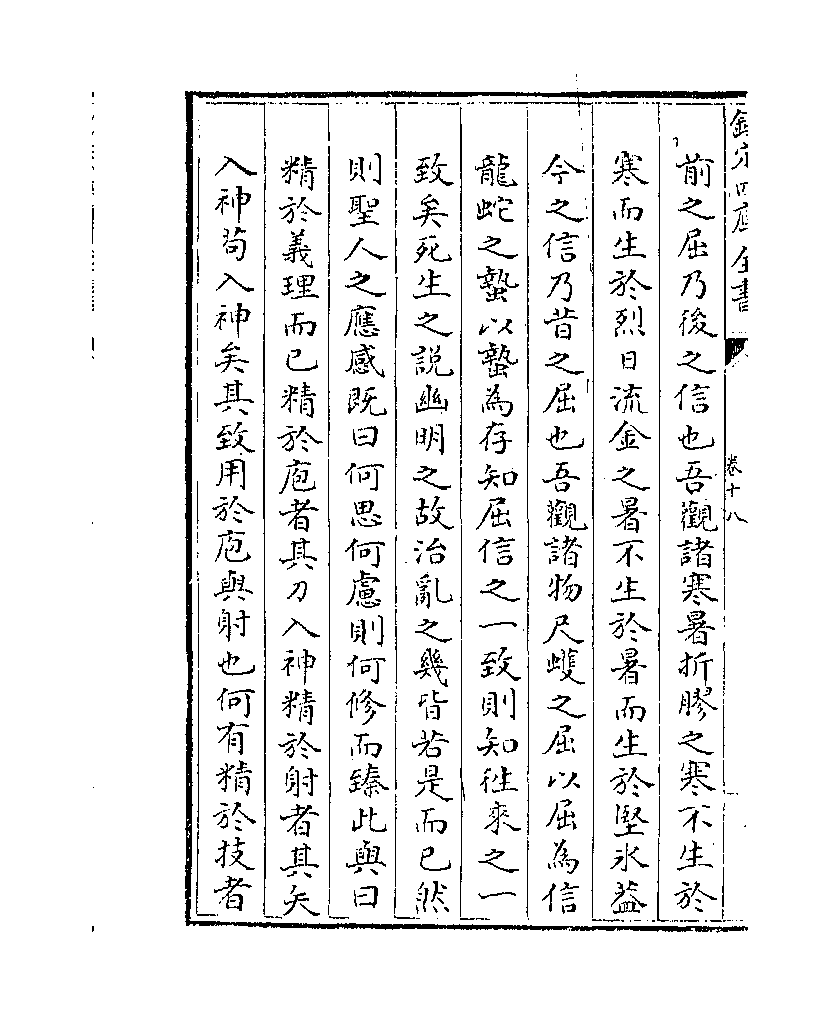 欽定四庫全書
卷十八
前之屈乃後之信也吾觀諸寒暑折膠之寒不生於
寒而生於烈日流金之暑不生於暑而生於堅氷葢
今之信乃昔之屈也吾觀諸物尺蠖之屈以屈為信
龍蛇之蟄以蟄為存知屈信之一致則知徃來之一
致矣死生之説幽明之故治亂之幾皆若是而已然
則聖人之應感既曰何思何慮則何修而臻此與曰
精於義理而已精於庖者其刀入神精於射者其矢
入神茍入神矣其致用於庖與射也何有精於技者